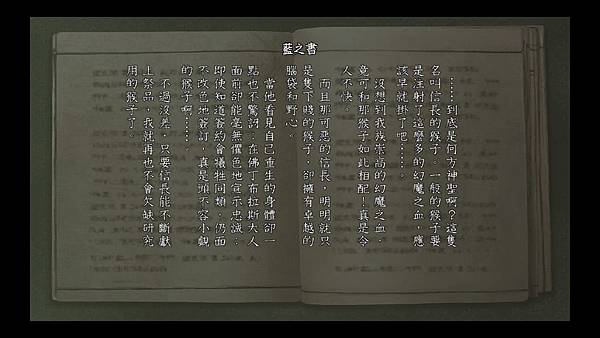 藍之書
……到底是何方神聖啊？這隻
名叫信長的猴子。一般的猴子要
是注射了這麼多的幻魔之血，應
該早就掛了吧……。
沒想到我族崇高的幻魔之血，
竟可和那猴子如此相配！真是令
人不快。
而且那可惡的信長，明明就只
是隻下賤的猴子，卻擁有卓越的
腦袋和野心。
當他看見自己重生的身體卻一
點也不驚訝。在佛丁布拉斯大人
面前卻能毫無懼色地宣示忠誠。
即使知道簽約會犧牲同類，仍面
不改色地簽訂，真是頭不容小覷
的猴子啊……。
不過沒差。只要信長能不斷獻
上祭品，我就再也不會欠缺研究
用的猴子了。